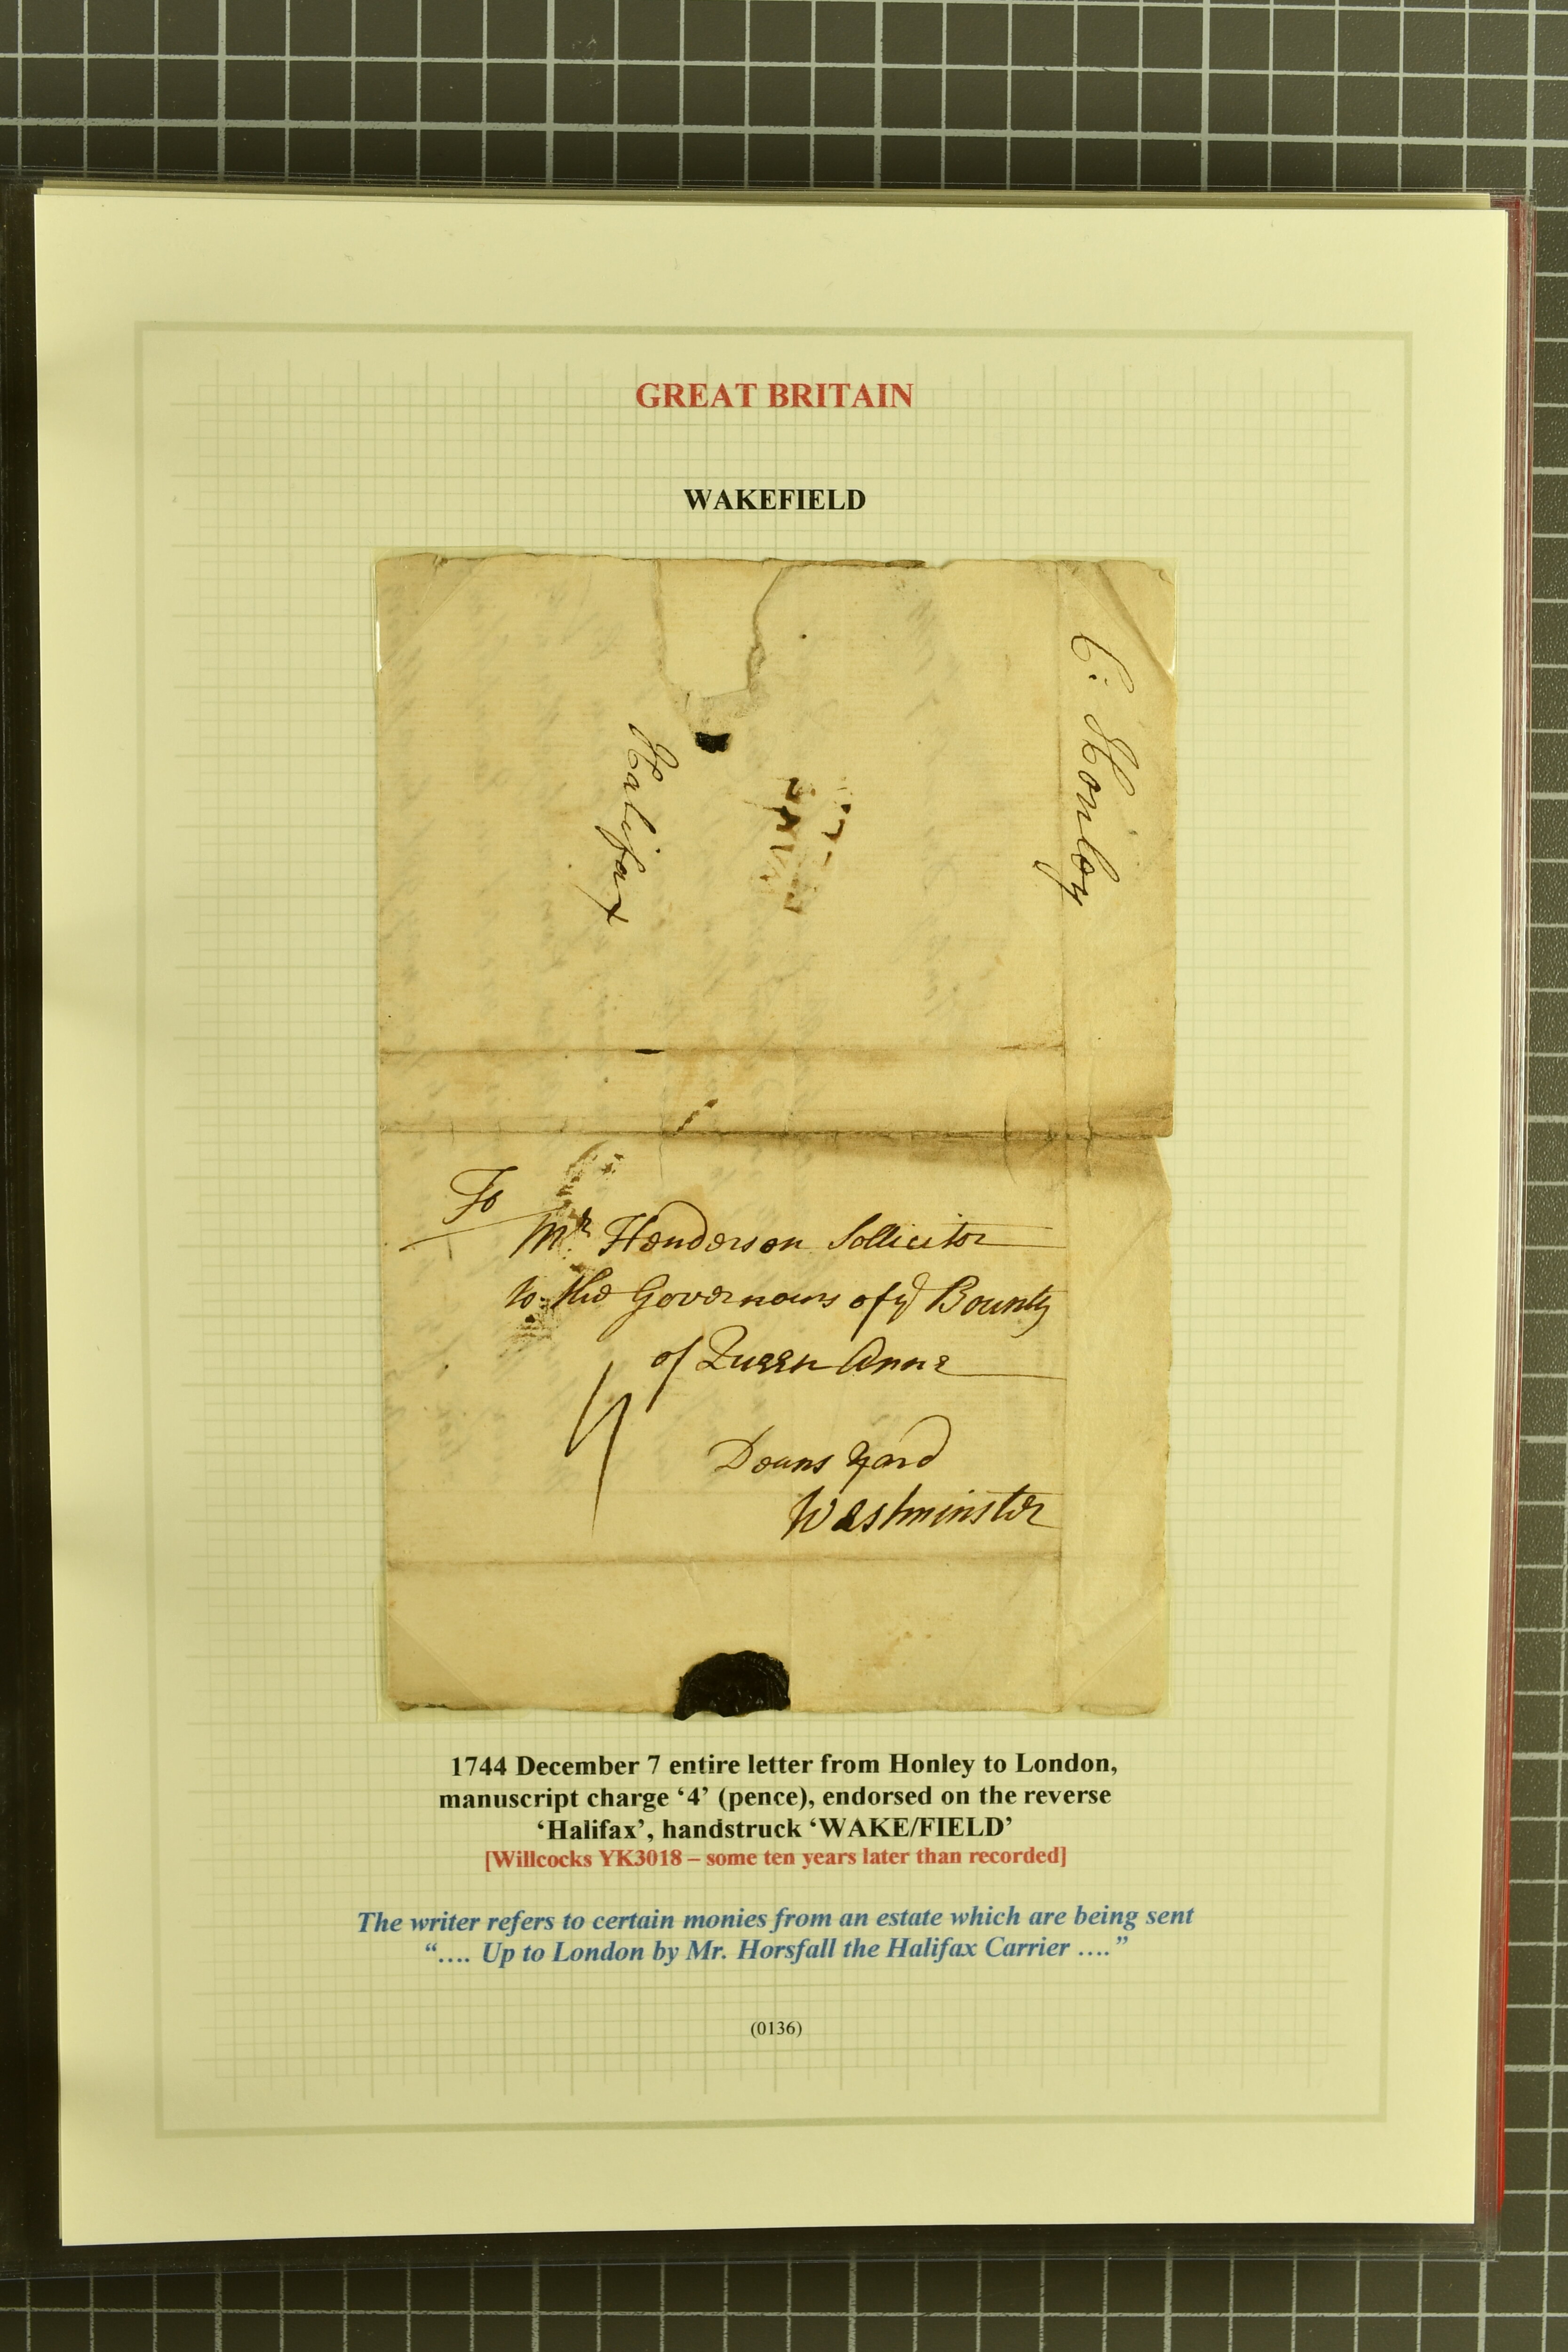 GREAT BRITAIN
WAKEFIELD
C: Honley
Halifax
WAKE
FIELD
To
Mr Henderson Sollicitor
to the Governours of ye Bounty
of Queen Anne
4
Deans Yard
Westminster
1744 December 7 entire letter from Honley to London,
manuscript charge ‘4’ (pence), endorsed on the reverse
‘Halifax’, handstruck ‘WAKE/FIELD’
[Willcocks YK3018 – some ten years later than recorded]
The writer refers to certain monies from an estate which are being sent
“…. Up to London by Mr. Horsfall the Halifax Carrier ….”
(0136)